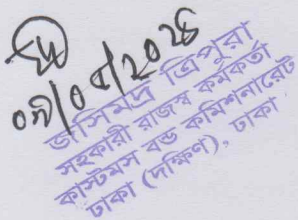 ০৯/০৫/২০২৪
জসিমদ্র ত্রিপুরা
সহকারী রাজস্ব কর্মকর্তা
কাস্টমস বন্ড কমিশনারেট
ঢাকা (দক্ষিণ), ঢাকা